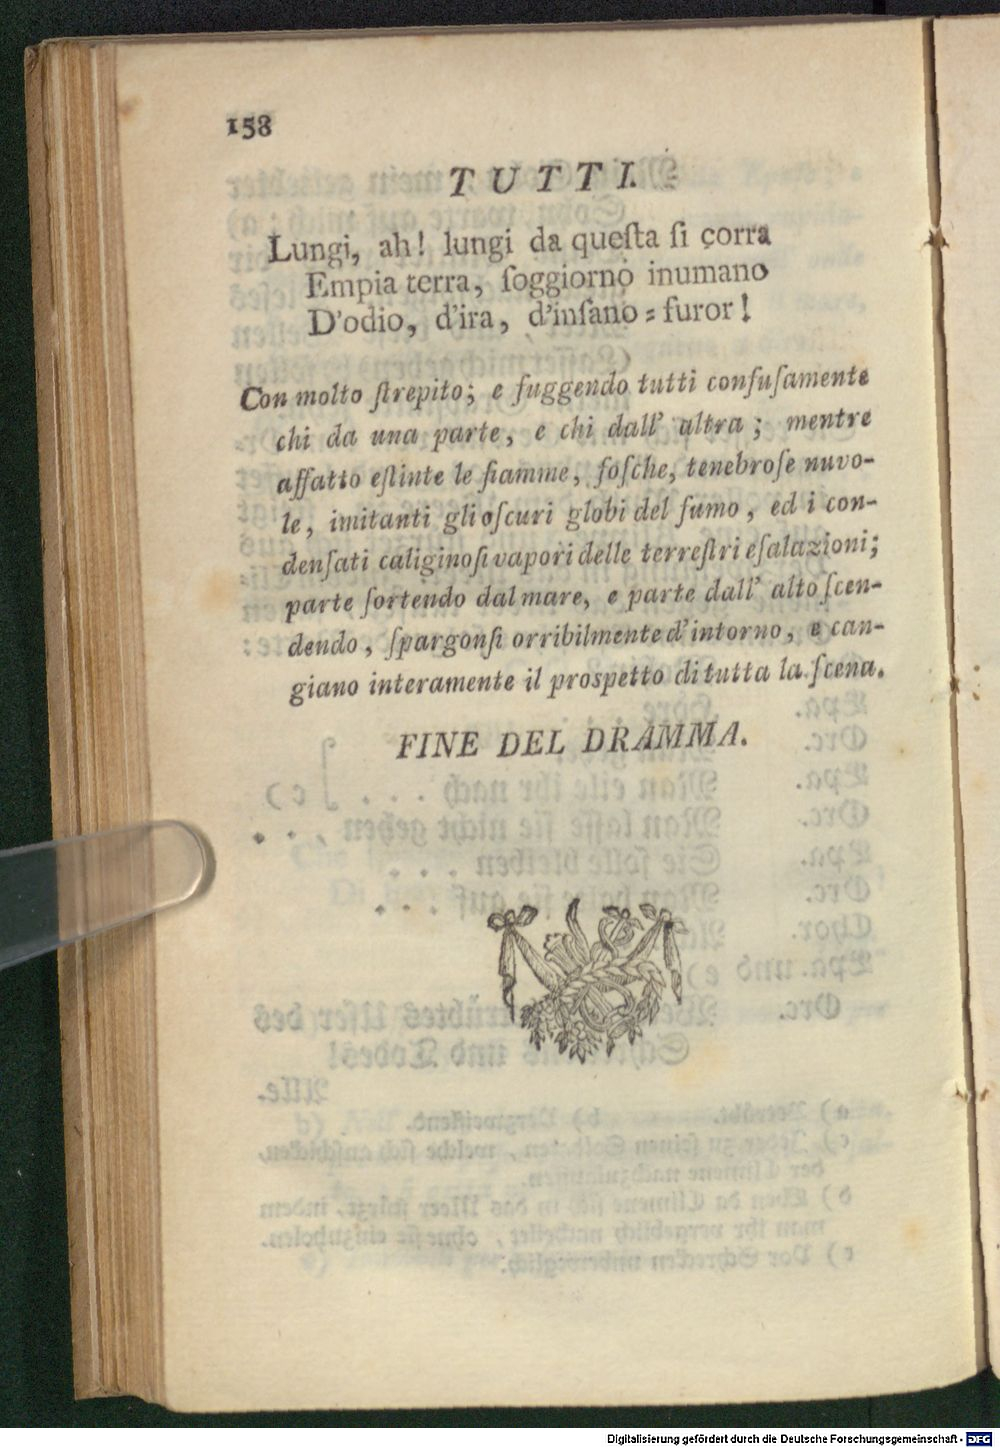 158
TUTTI.
Lungi, ah! lungi da queſta ſi corra
Empia terra, ſoggiorno inumano
D'odio, d'ira, d'inſano-furor!
Con molto ſtrepito; e fuggendo tutti confuſamente
chi da una parte, e chi dall' altra; mentre
affatto eſtinte le fiamme, foſche, tenebroſe nuvo-
le, imitanti gli oſcuri globi del fumo, ed i con-
denſati caliginoſi vapori delle terreſtri eſalazioni;
parte ſortendo dal mare, e parte dall' alto ſcen-
dendo, ſpargonſi orribilmente d'intorno, e can-
giano interamente il proſpetto di tutta la ſcena.
FINE DEL DRAMMA.
Digitalisierung gefördert durch die Deutsche Forschungsgemeinschaft - DFG